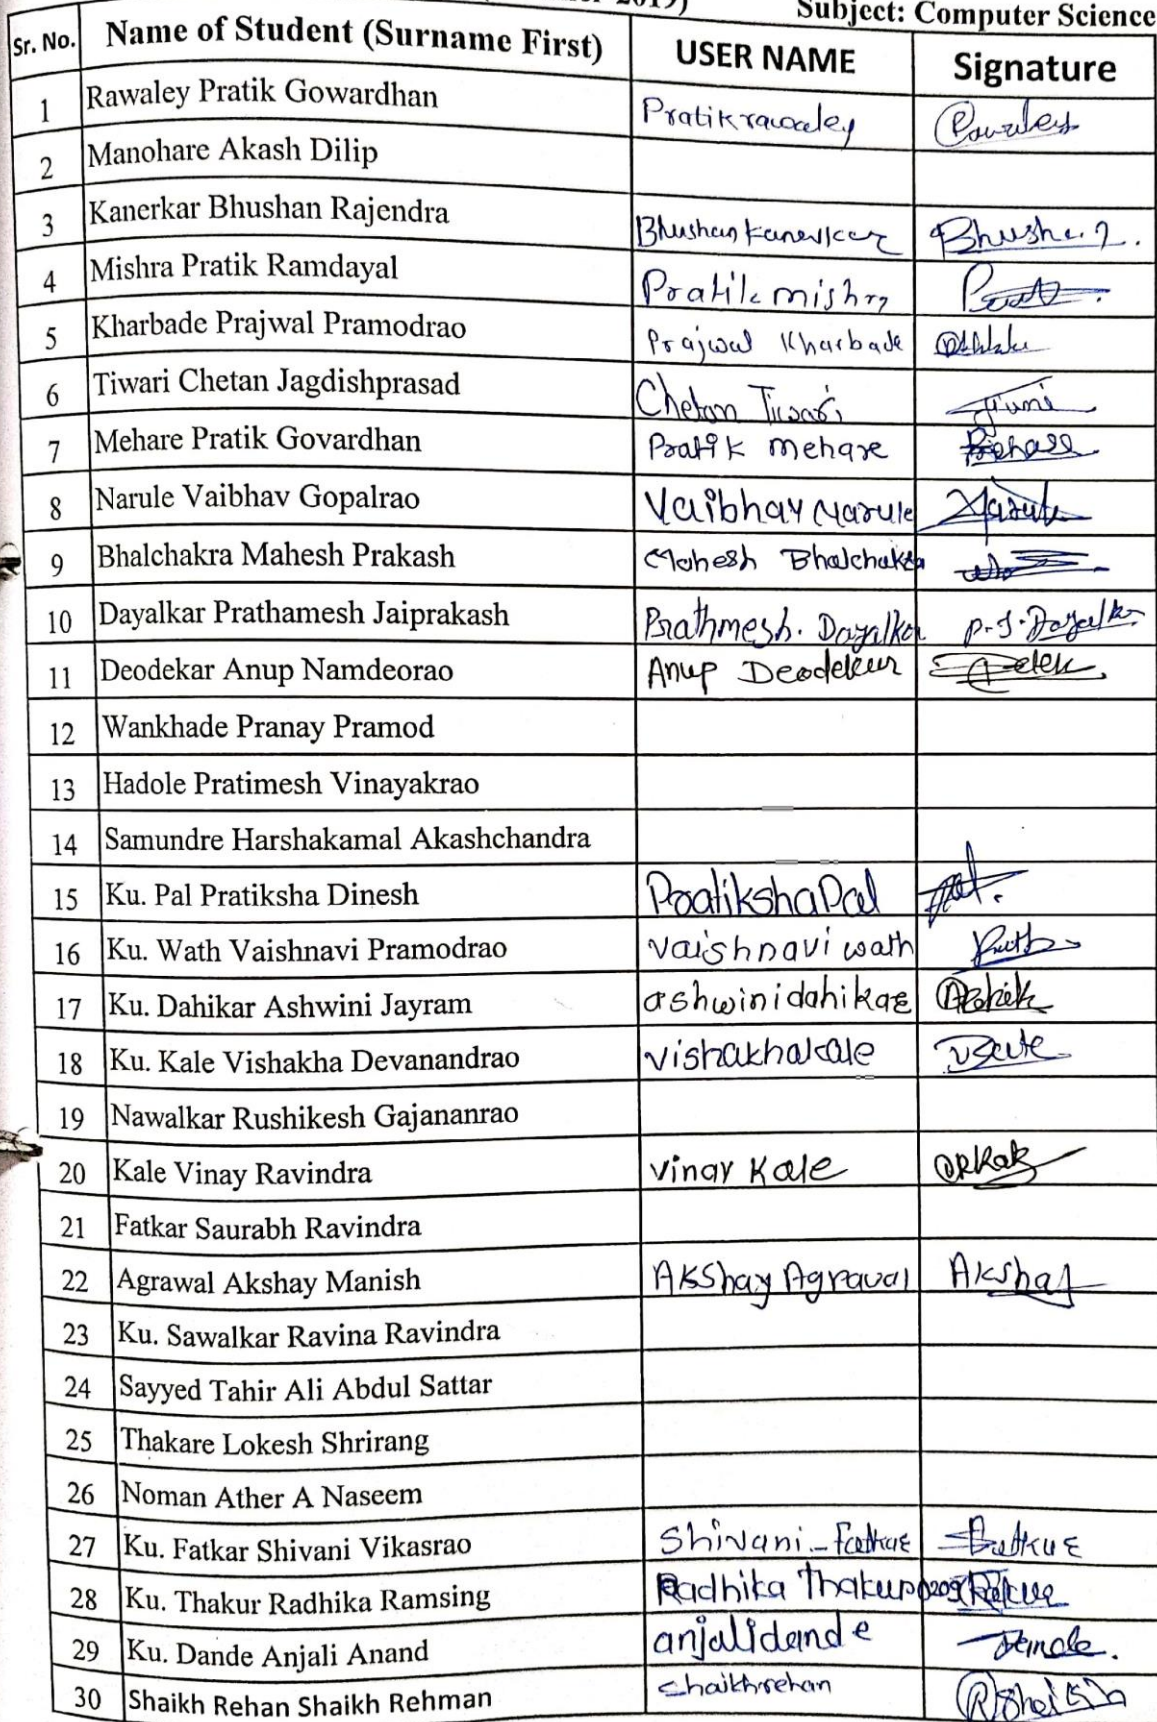 2019)
Subject: Computer Science
Sr. No. Name of Student (Surname First) USER NAME Signature
1 Rawaley Pratik Gowardhan Pratikrawaley
2 Manohare Akash Dilip
3 Kanerkar Bhushan Rajendra Bhushankanerkar Bhushan.
4 Mishra Pratik Ramdayal Pratik mishra
5 Kharbade Prajwal Pramodrao Prajwal Kharbade
6 Tiwari Chetan Jagdishprasad Chetan Tiwari
7 Mehare Pratik Govardhan Pratik mehare
8 Narule Vaibhav Gopalrao Vaibhav Narule
9 Bhalchakra Mahesh Prakash Mahesh Bhalchakra
10 Dayalkar Prathamesh Jaiprakash Prathmesh. Dayalkar P.J.Dayalkar
11 Deodekar Anup Namdeorao Anup Deodekar
12 Wankhade Pranay Pramod
13 Hadole Pratimesh Vinayakrao
14 Samundre Harshakamal Akashchandra
15 Ku. Pal Pratiksha Dinesh PratikshaPal
16 Ku. Wath Vaishnavi Pramodrao vaishnavi wath
17 Ku. Dahikar Ashwini Jayram ashwinidahikar
18 Ku. Kale Vishakha Devanandrao vishakhakale
19 Nawalkar Rushikesh Gajananrao
20 Kale Vinay Ravindra vinay Kale
21 Fatkar Saurabh Ravindra
22 Agrawal Akshay Manish AKShay Agrawal Akshay
23 Ku. Sawalkar Ravina Ravindra
24 Sayyed Tahir Ali Abdul Sattar
25 Thakare Lokesh Shrirang
26 Noman Ather A Naseem
27 Ku. Fatkar Shivani Vikasrao Shivani_fatkar
28 Ku. Thakur Radhika Ramsing Radhika Thakur
29 Ku. Dande Anjali Anand anjalidande
30 Shaikh Rehan Shaikh Rehman shaikhrehan